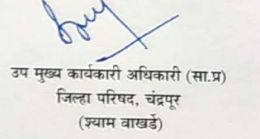 उप मुख्य कार्यकारी अधिकारी (सा.प्र)
जिल्हा परिषद, चंद्रपूर
(श्याम वाखर्डे)